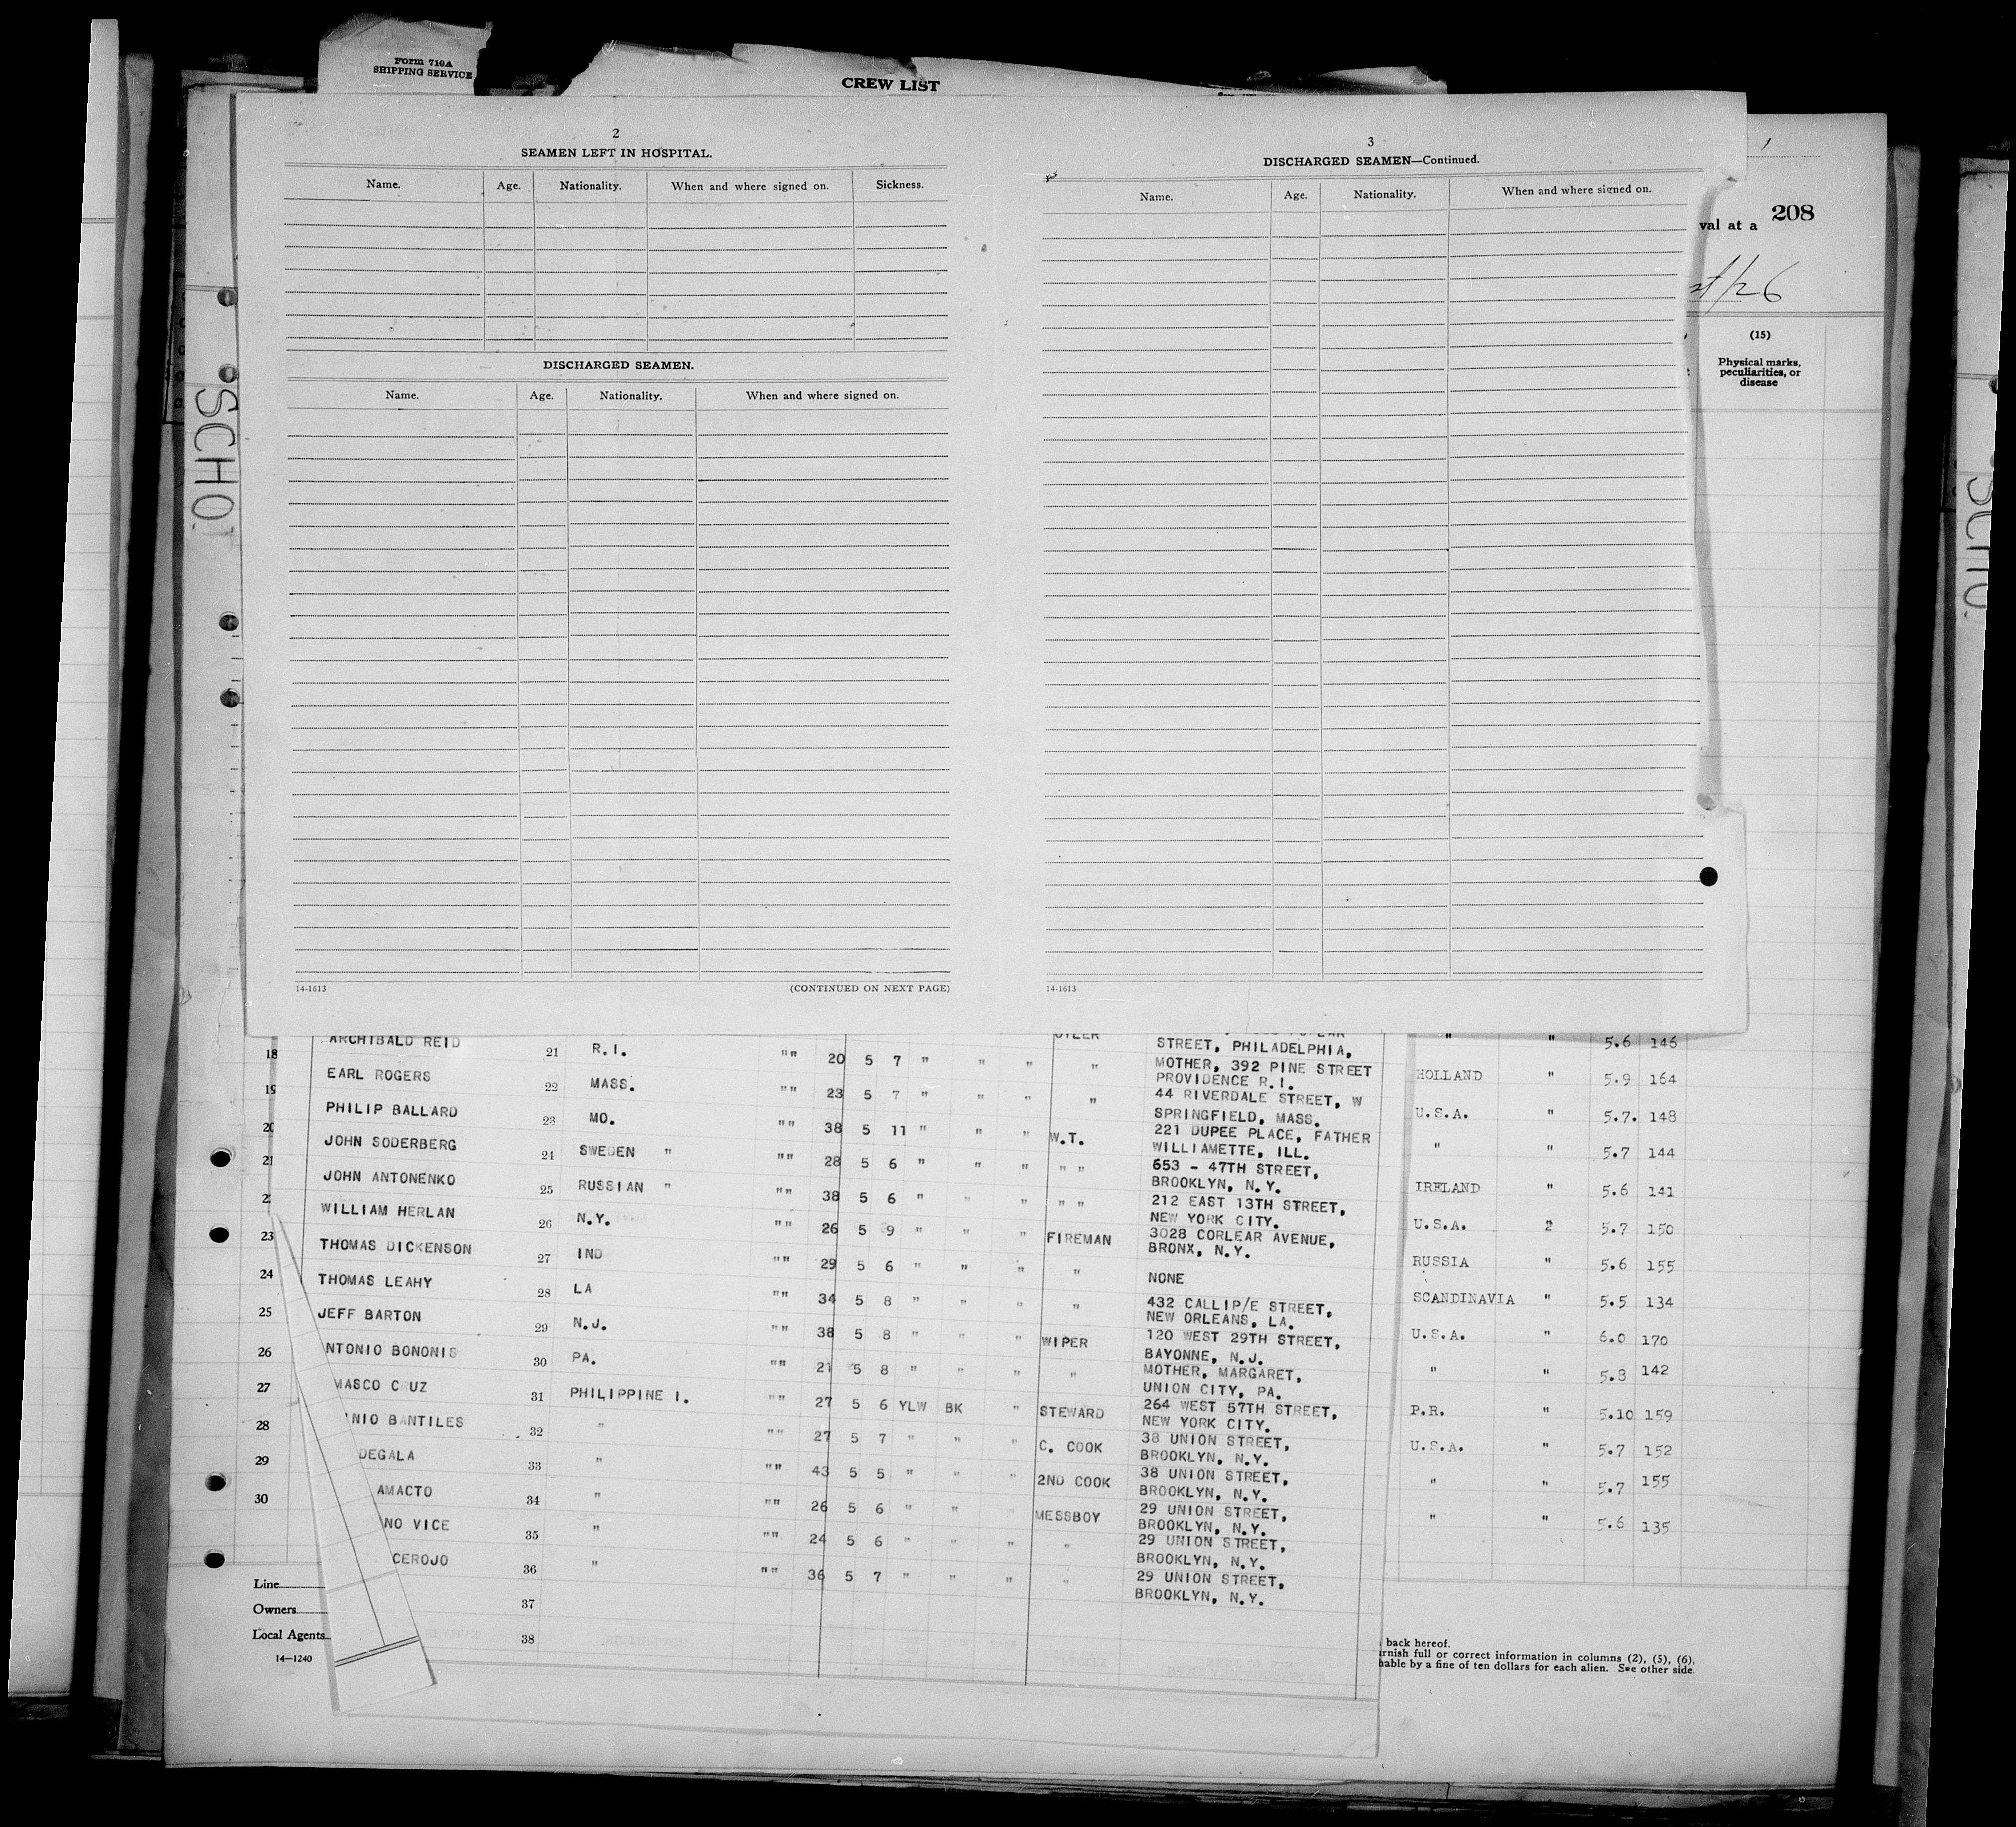 Form 710A
SHIPPING SERVICE
CREW LIST
2
SEAMEN LEFT IN HOSPITAL.
Name. Age. Nationality. When and where signed on. Sickness.
DISCHARGED SEAMEN.
Name. Age. Nationality. When and where signed on.
14-1613 (CONTINUED ON NEXT PAGE)
3
DISCHARGED SEAMEN—Continued.
Name. Age. Nationality. When and where signed on.
14-1613
208
val at a
/26
(15)
Physical marks,
peculiarities, or
disease
SCHO
ARCHIBALD REID 21 R.I. "" 20 5 7 " " " "
EARL ROGERS 22 MASS. "" 23 5 7 " " " "
PHILIP BALLARD 23 MO. "" 38 5 11 " " " W.T.
JOHN SODERBERG 24 SWEDEN " "" 28 5 6 " " " " "
JOHN ANTONENKO 25 RUSSIAN " "" 38 5 6 " " " " "
WILLIAM HERLAN 26 N.Y. "" 26 5 9 " " " FIREMAN
THOMAS DICKENSON 27 IND "" 29 5 6 " " " "
THOMAS LEAHY 28 LA "" 34 5 8 " " " "
JEFF BARTON 29 N.J. "" 38 5 8 " " " WIPER
NTONIO BONONIS 30 PA. "" 21 5 8 " " " "
MASCO CRUZ 31 PHILIPPINE I. "" 27 5 6 YLW BK " STEWARD
NIO BANTILES 32 " "" 27 5 7 " " " C. COOK
DEGALA 33 " "" 43 5 5 " " " 2ND COOK
AMACTO 34 " "" 26 5 6 " " " MESSBOY
NO VICE 35 " "" 24 5 6 " " " "
CEROJO 36 " "" 36 5 7 " " " "
37
38
STREET, PHILADELPHIA,
MOTHER, 392 PINE STREET
PROVIDENCE R.I.
44 RIVERDALE STREET, W
SPRINGFIELD, MASS.
221 DUPEE PLACE, FATHER
WILLIAMETTE, ILL.
653 - 47TH STREET,
BROOKLYN, N.Y.
212 EAST 13TH STREET,
NEW YORK CITY.
3028 CORLEAR AVENUE,
BRONX, N.Y.
NONE
432 CALLIP/E STREET,
NEW ORLEANS, LA.
120 WEST 29TH STREET,
BAYONNE, N.J.
MOTHER, MARGARET,
UNION CITY, PA.
264 WEST 57TH STREET,
NEW YORK CITY.
38 UNION STREET,
BROOKLYN, N.Y.
38 UNION STREET,
BROOKLYN, N.Y.
29 UNION STREET,
BROOKLYN, N.Y.
29 UNION STREET,
BROOKLYN, N.Y.
29 UNION STREET,
BROOKLYN, N.Y.
" " 5.6 146
HOLLAND " 5.9 164
U.S.A. " 5.7. 148
" " 5.7 144
IRELAND " 5.6 141
U.S.A. 2 5.7 150
RUSSIA " 5.6 155
SCANDINAVIA " 5.5 134
U.S.A. " 6.0 170
" " 5.8 142
P.R. " 5.10 159
U.S.A. " 5.7 152
" " 5.7 155
" " 5.6 135
18
19
20
21
23
24
25
26
27
28
29
30
Line
Owners
Local Agents
14—1240
back hereof.
rnish full or correct information in columns (2), (5), (6),
hable by a fine of ten dollars for each alien. See other side.